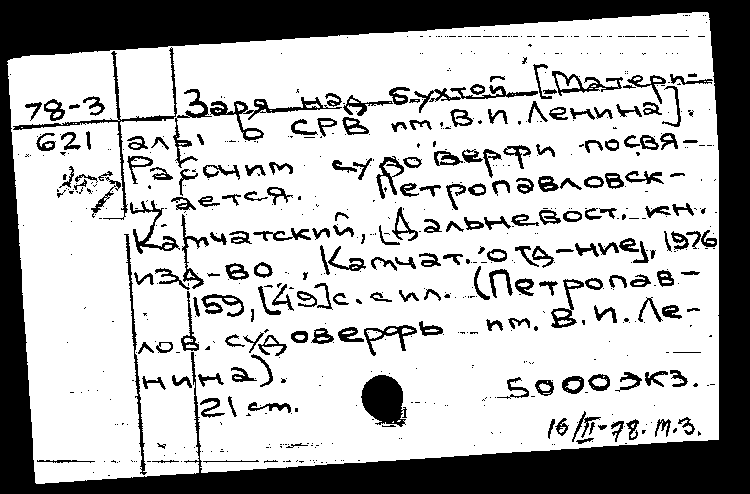 78-3 Заря над бухтой [Матери-
621 алы о СРВ им. В.И. Ленина].
Рабочим судоверфи посвя-
щается. Петропавловск-
Камчатский, Дальневост. кн.
изд-во, Камчат. отд-ние, 1976
159, [49] с. с ил. (Петропав-
лов. судоверфь им. В.И. Ле-
нина).
21 см. 5000 экз.
16/II-78. М.З.